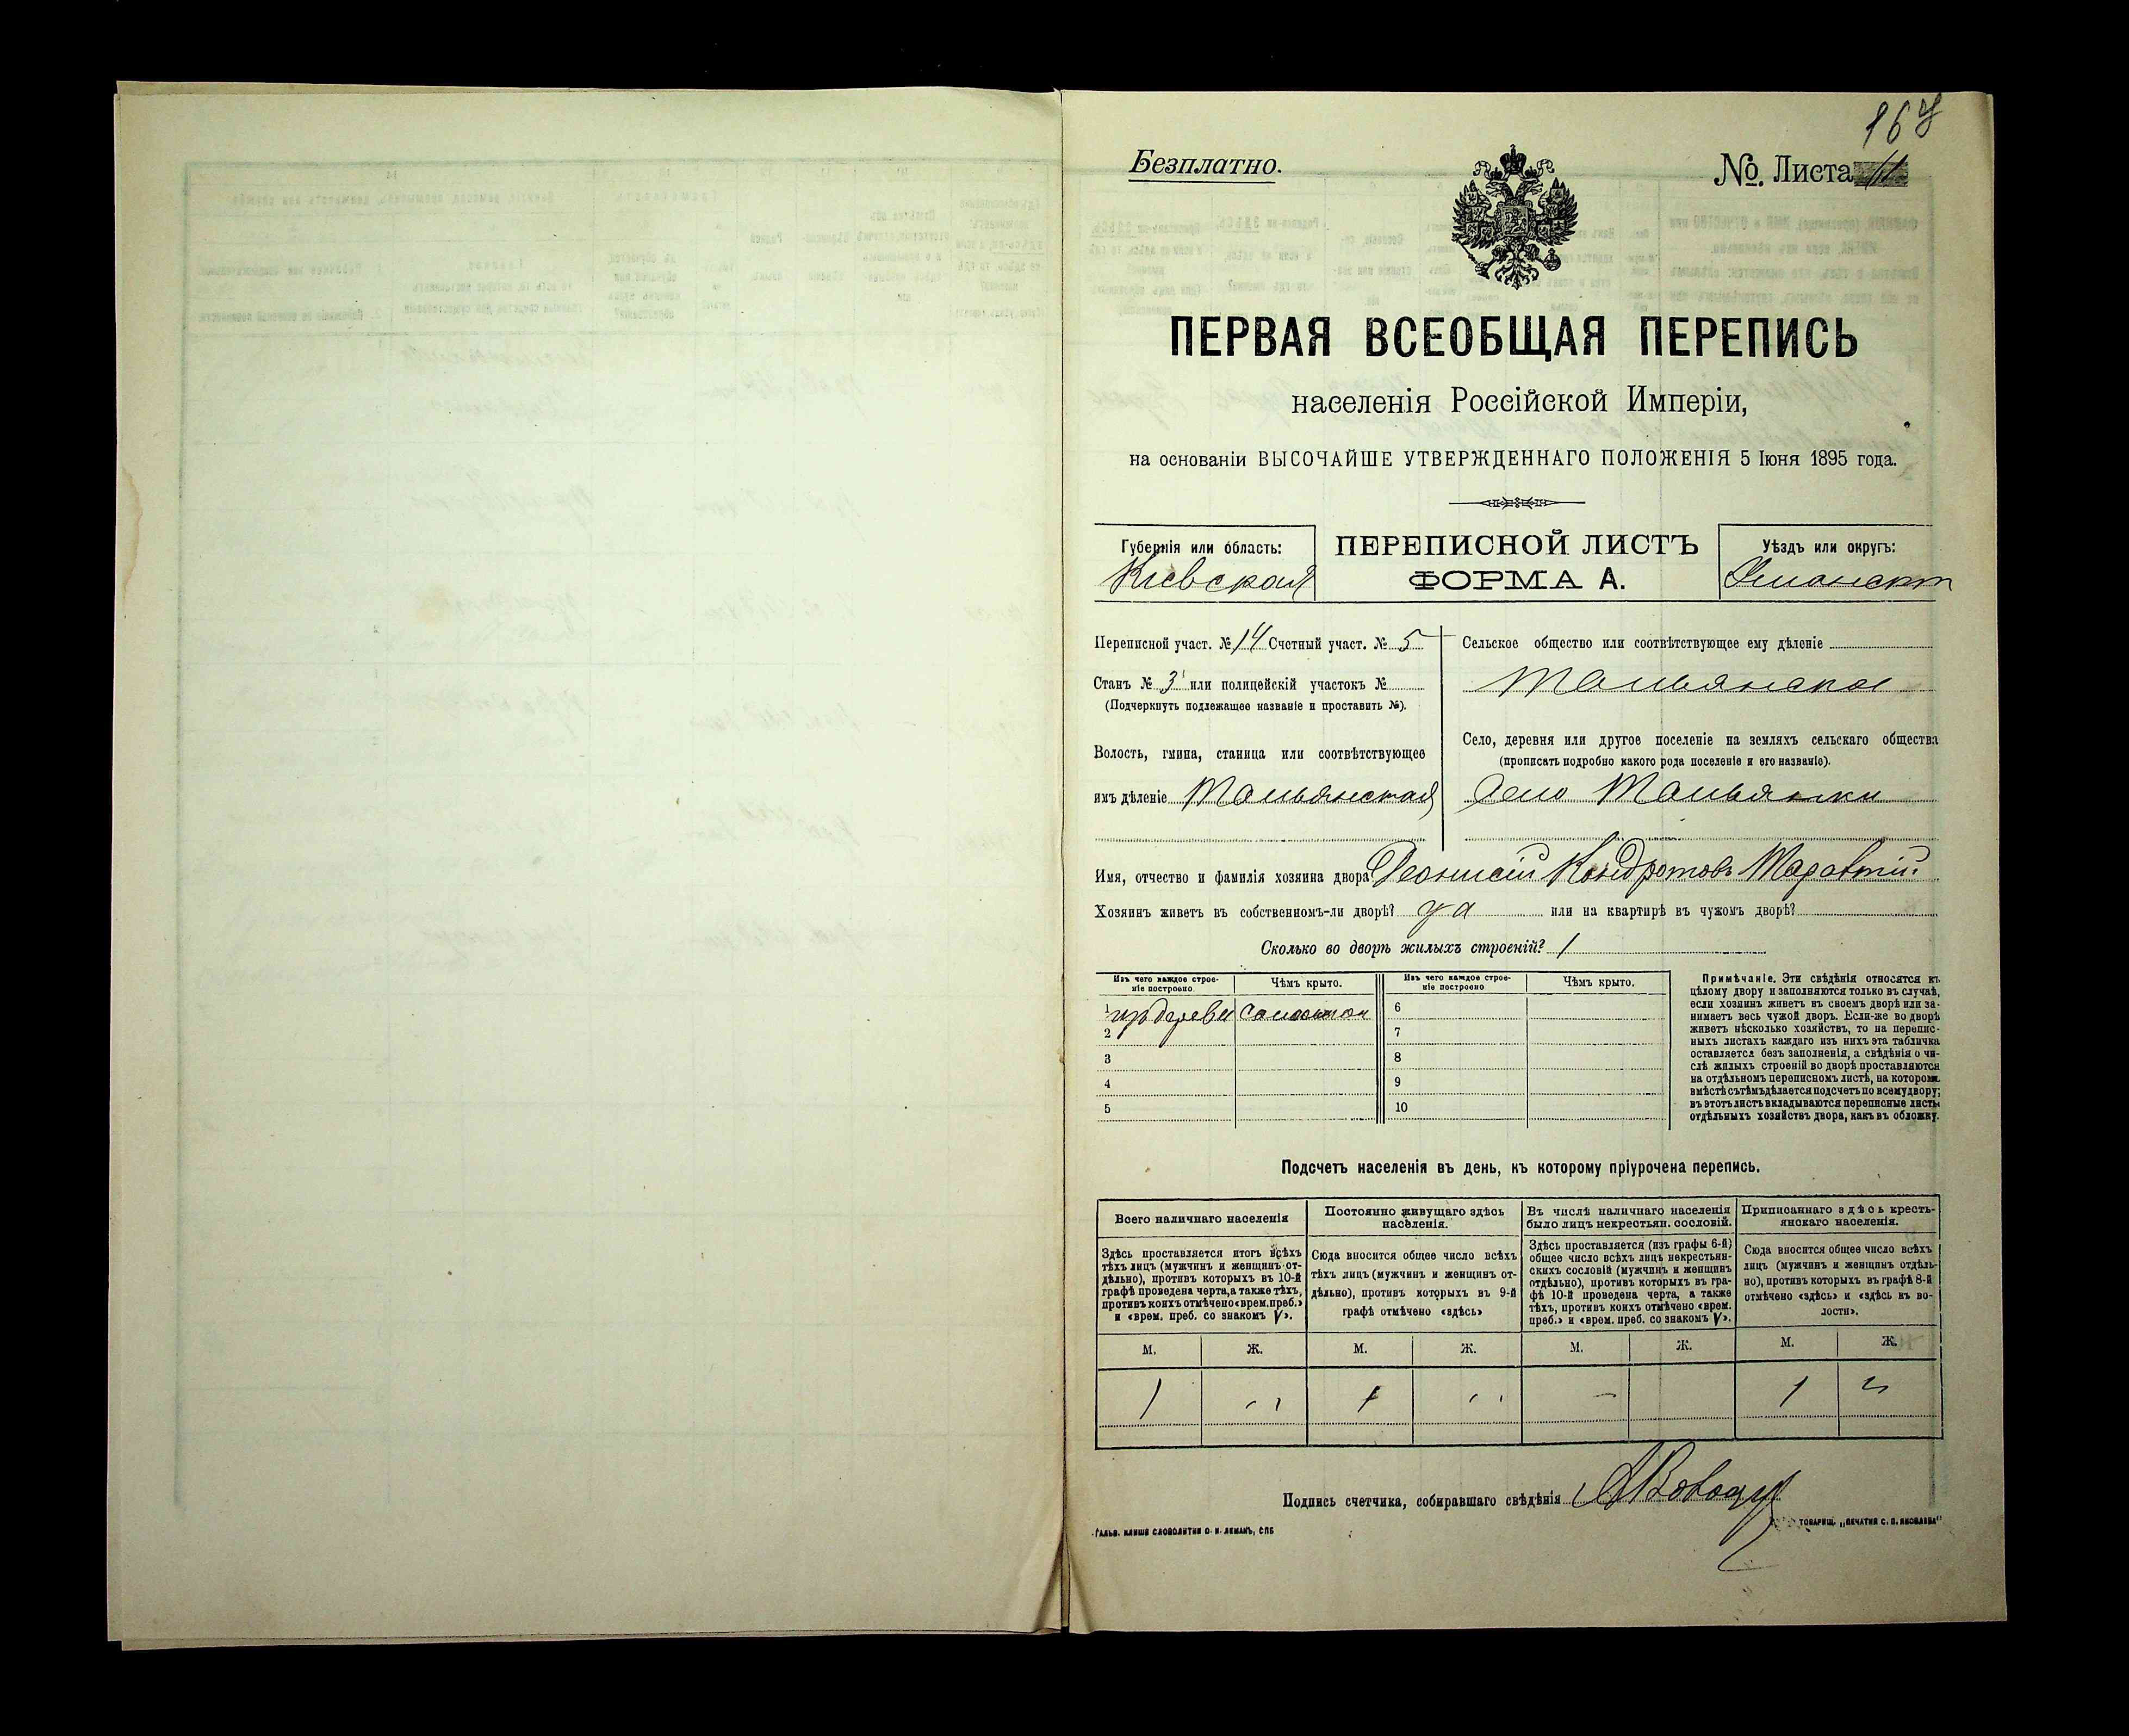 167
Безплатно.
№. Листа 11
ПЕРВАЯ ВСЕОБЩАЯ ПЕРЕПИСЬ
населенія Россійской Имперіи,
на основаніи ВЫСОЧАЙШЕ УТВЕРЖДЕННАГО ПОЛОЖЕНІЯ 5 Іюня 1895 года.
Губернія или область:
Кіевская
ПЕРЕПИСНОЙ ЛИСТЪ
ФОРМА А.
Уѣздъ или округъ:
Уманскій
Переписной участ. № 14 Счетный участ. № 5
Станъ № 3 или полицейскій участокъ №
(Подчеркнуть подлежащее названіе и проставить №).
Волость, гмина, станица или соотвѣтствующее
имъ дѣленіе Тальянская
Сельское общество или соотвѣтствующее ему дѣленіе
Тальянское
Село, деревня или другое поселеніе на земляхъ сельскаго общества
(прописать подробно какого рода поселеніе и его названіе).
Село Тальянки
Имя, отчество и фамилія хозяина двора Деонисій Кондратовъ
Хозяинъ живетъ въ собственномъ-ли дворѣ? да или на квартирѣ въ чужомъ дворѣ?
Сколько во дворѣ жилыхъ строеній? 1
Изъ чего каждое строе-
ніе построено
Чѣмъ крыто.
Изъ чего каждое строе-
ніе построено
Чѣмъ крыто.
1 изъ дерева соломой
2
3
4
5
6
7
8
9
10
Примѣчаніе. Эти свѣдѣнія относятся къ
цѣлому двору и заполняются только въ случаѣ,
если хозяинъ живетъ въ своемъ дворѣ или за-
нимаетъ весь чужой дворъ. Если-же во дворѣ
живетъ нѣсколько хозяйствъ, то на перепис-
ныхъ листахъ каждаго изъ нихъ эта табличка
оставляется безъ заполненія, а свѣдѣнія о чи-
слѣ жилыхъ строеній во дворѣ проставляются
на отдѣльномъ переписномъ листѣ, на которомъ
вмѣстѣ съ тѣмъ дѣлается подсчетъ по всему двору;
въ этотъ листъ вкладываются переписные листы
отдѣльныхъ хозяйствъ двора, какъ въ обложку.
Подсчетъ населенія въ день, къ которому пріурочена перепись.
Всего наличнаго населенія
Постоянно живущаго здѣсь
населенія.
Въ числѣ наличнаго населенія
было лицъ некрестьян. сословій.
Приписаннаго здѣсь кресть-
янскаго населенія.
Здѣсь проставляется итогъ всѣхъ
тѣхъ лицъ (мужчинъ и женщинъ от-
дѣльно), противъ которыхъ въ 10-й
графѣ проведена черта, а также тѣхъ,
противъ коихъ отмѣчено «врем. преб.»
и «врем. преб. со знакомъ V».
Сюда вносится общее число всѣхъ
тѣхъ лицъ (мужчинъ и женщинъ от-
дѣльно), противъ которыхъ въ 9-й
графѣ отмѣчено «здѣсь»
Здѣсь проставляется (изъ графы 6-й)
общее число всѣхъ лицъ некрестьян-
скихъ сословій (мужчинъ и женщинъ
отдѣльно), противъ которыхъ въ гра-
фѣ 10-й проведена черта, а также
тѣхъ, противъ коихъ отмѣчено «врем.
преб.» и «врем. преб. со знакомъ V».
Сюда вносится общее число всѣхъ
лицъ (мужчинъ и женщинъ отдѣль-
но), противъ которыхъ въ графѣ 8-й
отмѣчено «здѣсь» и «здѣсь въ во-
лости».
М. Ж. М. Ж. М. Ж. М. Ж.
1 1 – 1
Подпись счетчика, собиравшаго свѣдѣнія
Гальв. клише словолитни О. И. Леманъ, СПБ
Товарищ. „Печатня С. П. Яковлева“